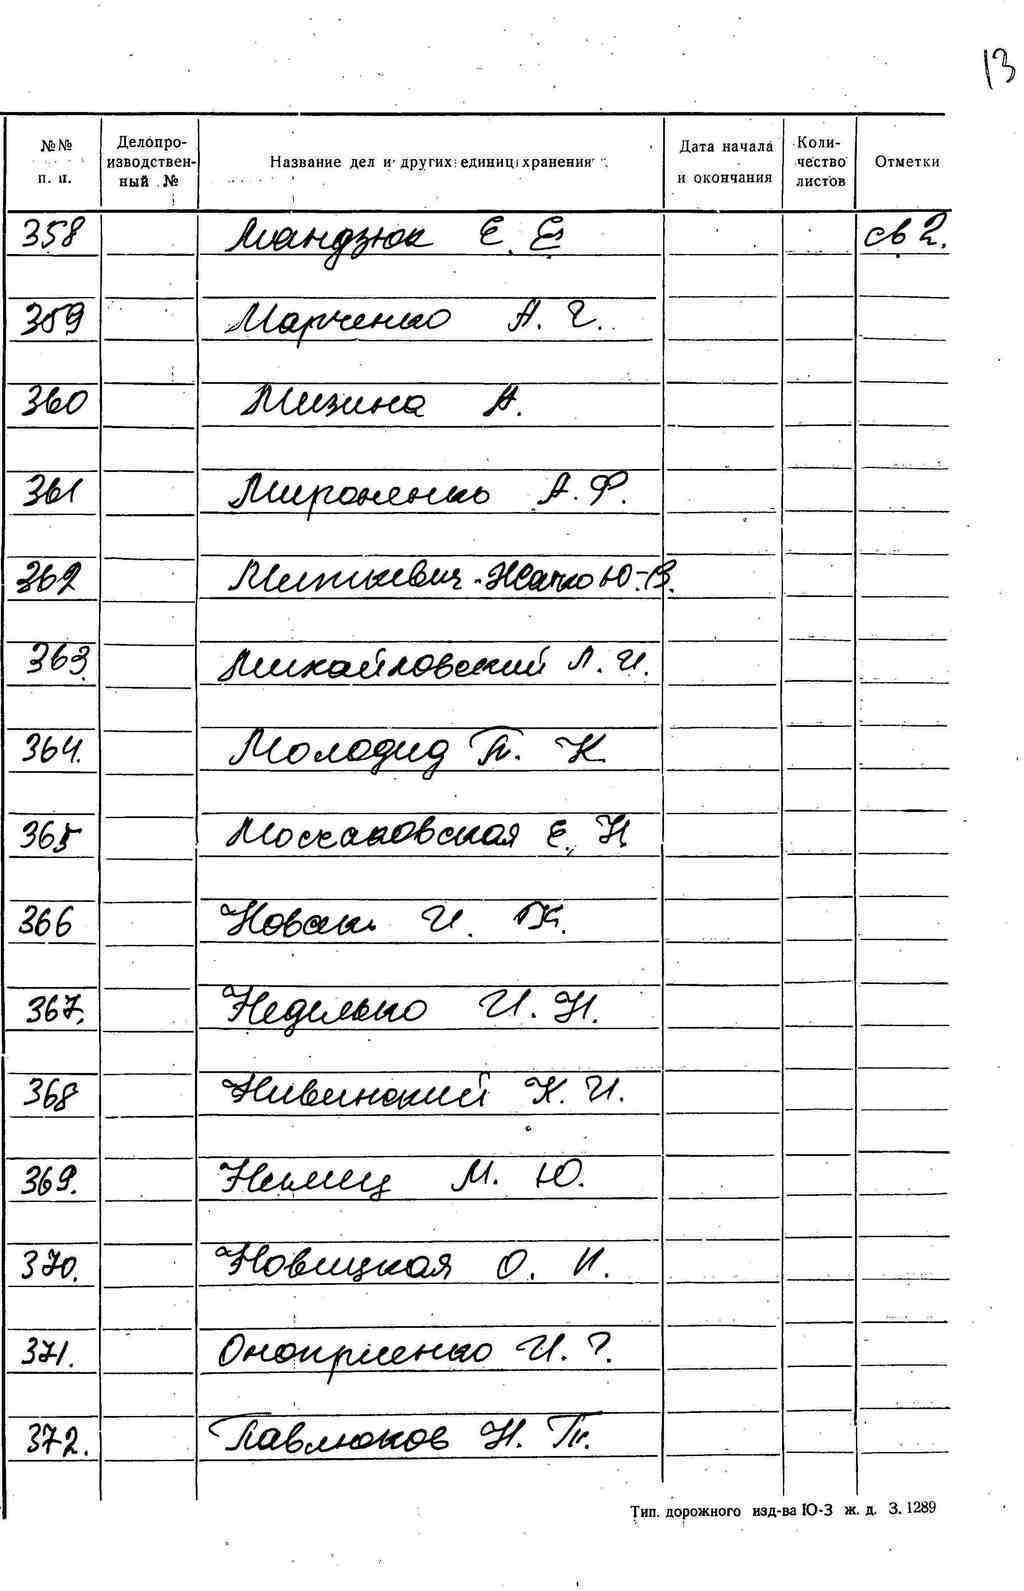 13
№№ п. п. Делопроизводственный № Название дел и других единиц хранения Дата начала и окончания Количество листов Отметки
358 Мандзюк Е. Е. св 2.
359 Марченко А. Г.
360 Мизина А.
361 Мироненко А. Ф.
362 Миткевич-Жачко Ю. В.
363. Михайловский Л. И.
364. Молодид П. К.
365 Моссаковская Е. Н.
366 И. К.
367. Неделько И. Н.
368 Нивинский К. И.
369. Немец М. Ю.
370. Новицкая О. И.
371. Оноприенко И. Г.
372. Павлюков Н. П.
Тип. дорожного изд-ва Ю-З ж. д. З. 1289